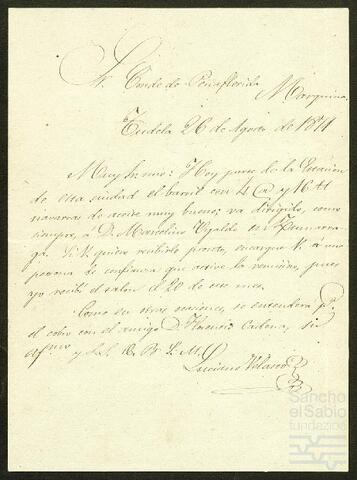 Sr. Conde de Peñaflorida
Marquina
Tudela 26 de Agosto de 1871
Muy Sr. mio: Hoy pasa de la Estacion
de esta ciudad el barril con 4 @ y 16 tt
navarras de aceite muy bueno; va dirigido, como
siempre, á D. Marcelino Ugalde en Zumarra-
ga. Si V. quiere recibirlo pronto, encargue V. á una
persona de confianza que active la remision, pues
yo recibí el 20 de este mes.
Como en otras ocasiones, se entenderá pa.
el cobro con el amigo D. Cadena, su
af'mo y S.S. Q. B. S. M.
Luciano Velasco
Sancho
el Sabio
fundazioa